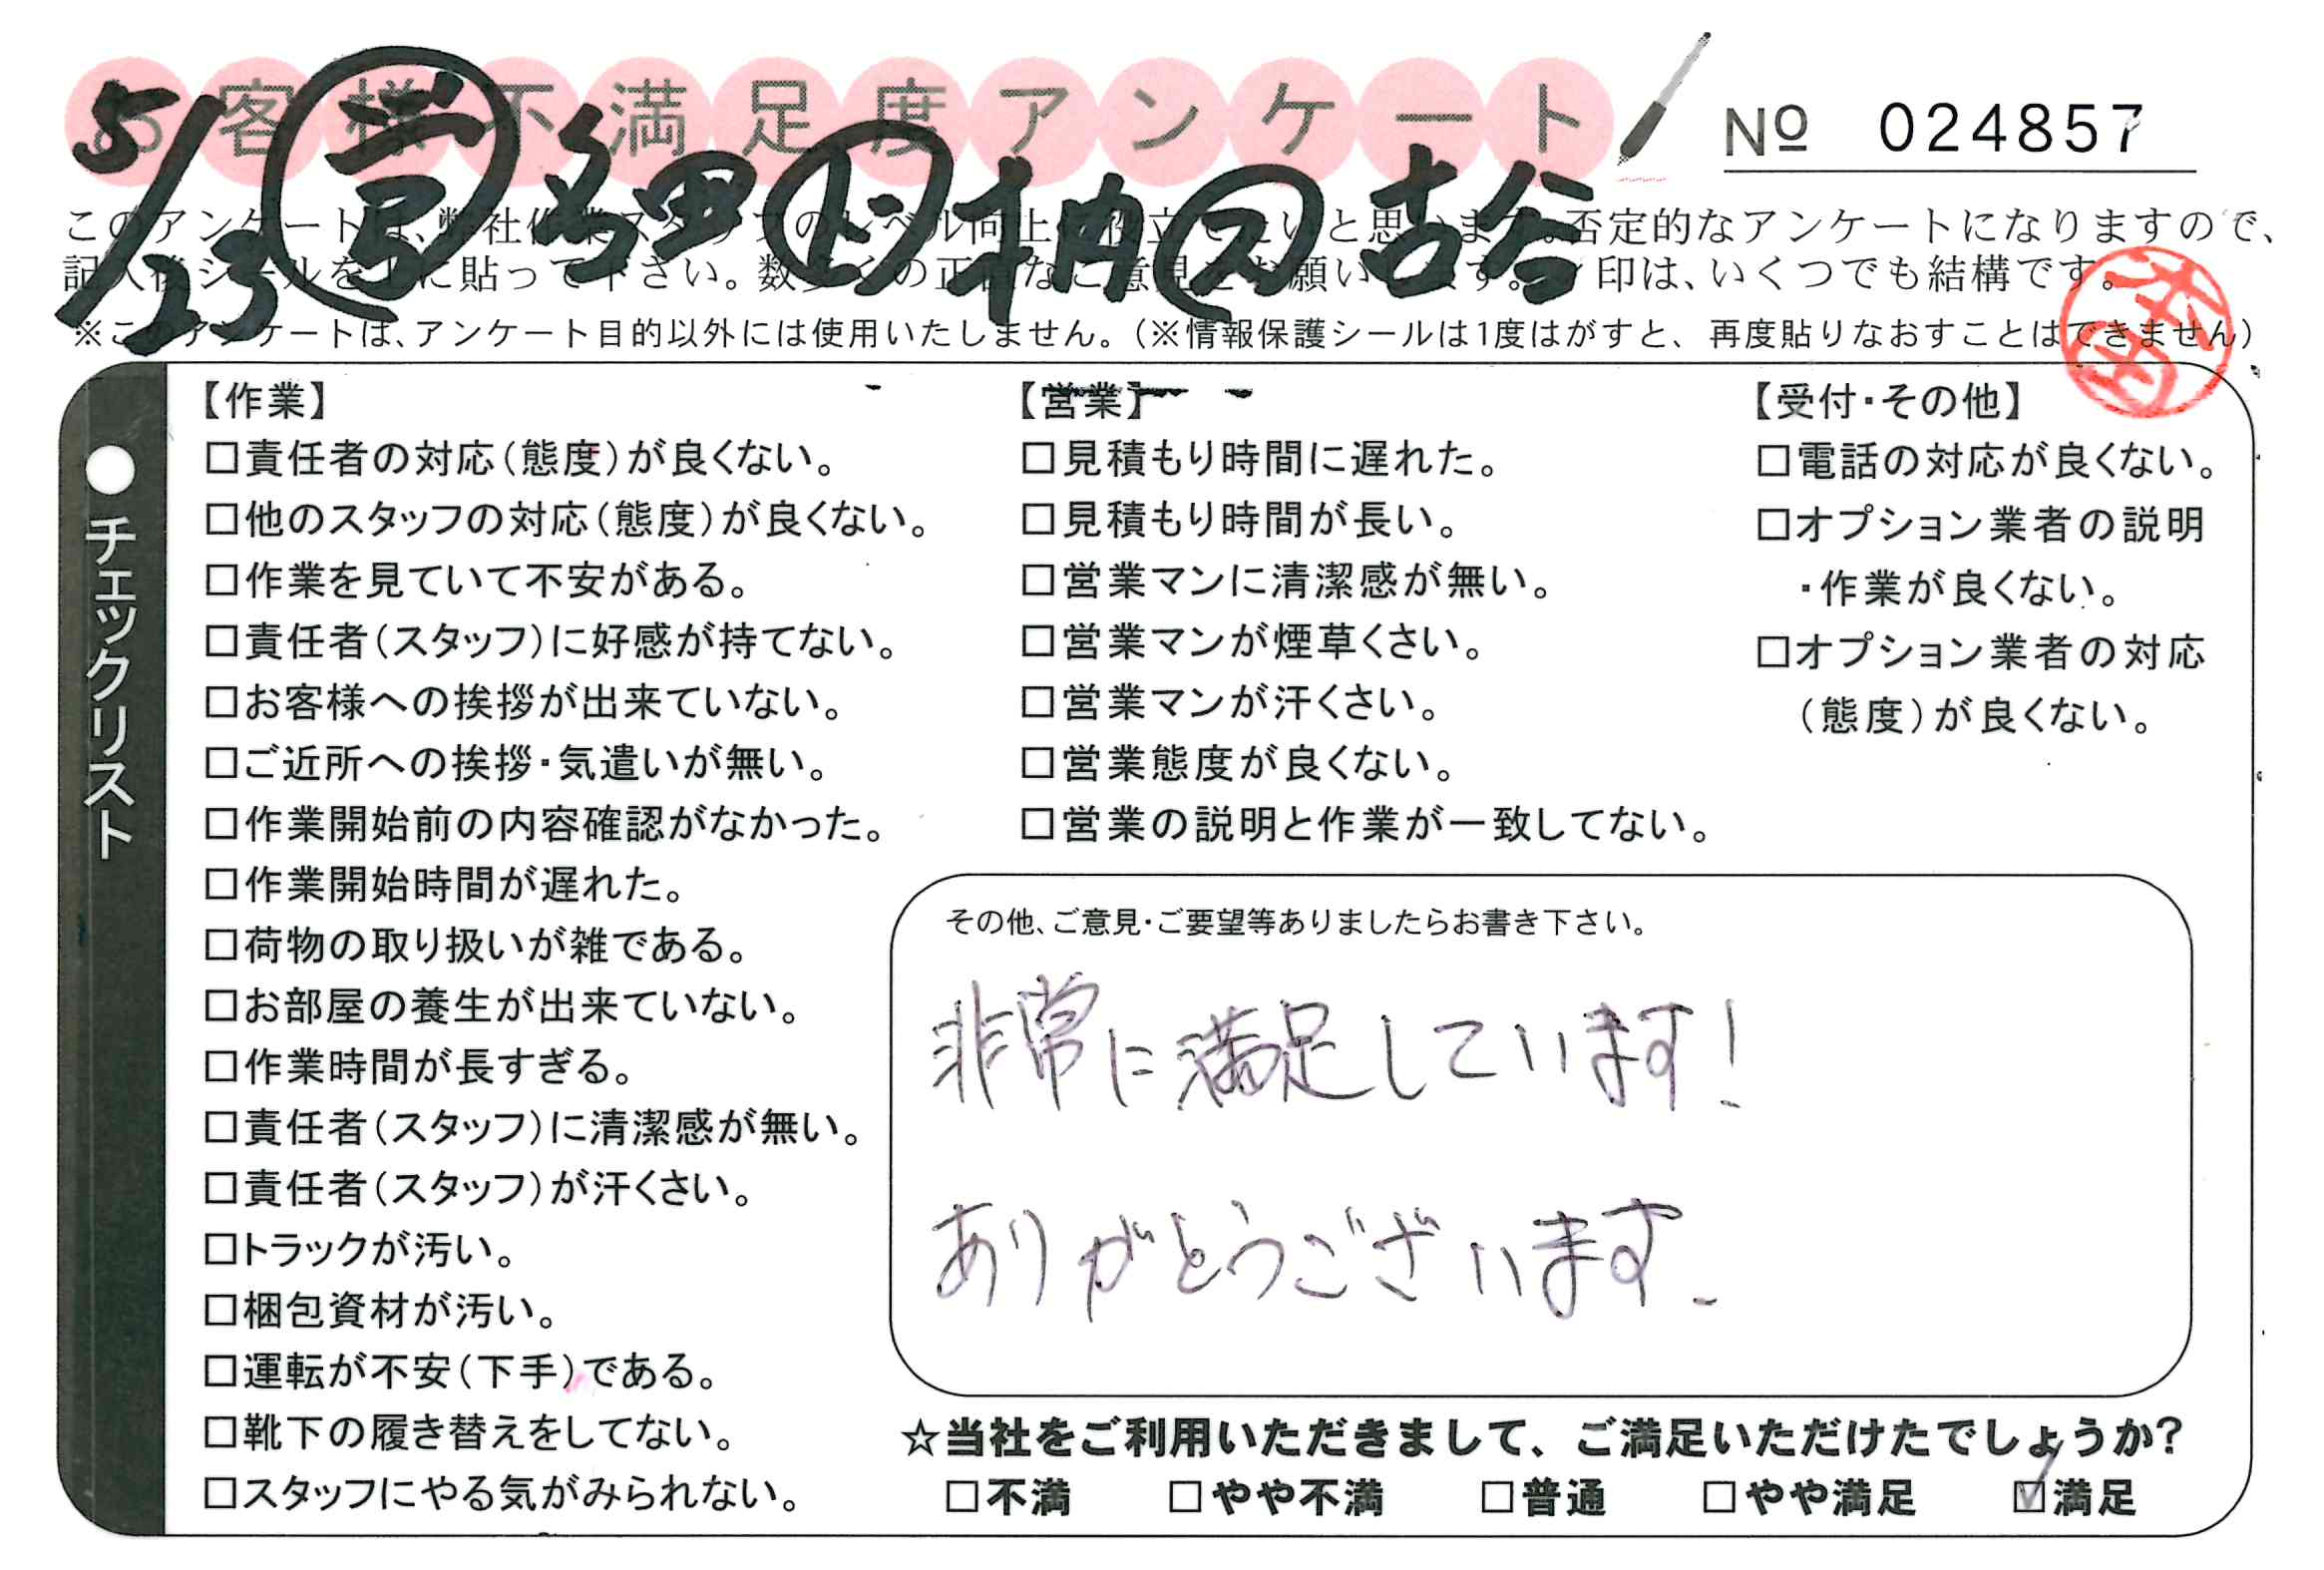 お客様不満足度アンケート
№ 024857
5/23 営 多田 ト 柚 ス 古谷
このアンケートは、弊社作業スタッフのレベル向上に役立てたいと思います。否定的なアンケートになりますので、
記入後シールを上に貼って下さい。数多くの正直なご意見をお願いします。レ印は、いくつでも結構です。
※このアンケートは、アンケート目的以外には使用いたしません。(※情報保護シールは1度はがすと、再度貼りなおすことはできません)
●チェックリスト
【作業】
□責任者の対応(態度)が良くない。
□他のスタッフの対応(態度)が良くない。
□作業を見ていて不安がある。
□責任者(スタッフ)に好感が持てない。
□お客様への挨拶が出来ていない。
□ご近所への挨拶・気遣いが無い。
□作業開始前の内容確認がなかった。
□作業開始時間が遅れた。
□荷物の取り扱いが雑である。
□お部屋の養生が出来ていない。
□作業時間が長すぎる。
□責任者(スタッフ)に清潔感が無い。
□責任者(スタッフ)が汗くさい。
□トラックが汚い。
□梱包資材が汚い。
□運転が不安(下手)である。
□靴下の履き替えをしてない。
□スタッフにやる気がみられない。
【営業】
□見積もり時間に遅れた。
□見積もり時間が長い。
□営業マンに清潔感が無い。
□営業マンが煙草くさい。
□営業マンが汗くさい。
□営業態度が良くない。
□営業の説明と作業が一致してない。
【受付・その他】
□電話の対応が良くない。
□オプション業者の説明
・作業が良くない。
□オプション業者の対応
(態度)が良くない。
その他、ご意見・ご要望等ありましたらお書き下さい。
非常に満足しています!
ありがとうございます。
☆当社をご利用いただきまして、ご満足いただけたでしょうか?
□不満 □やや不満 □普通 □やや満足 ☑満足